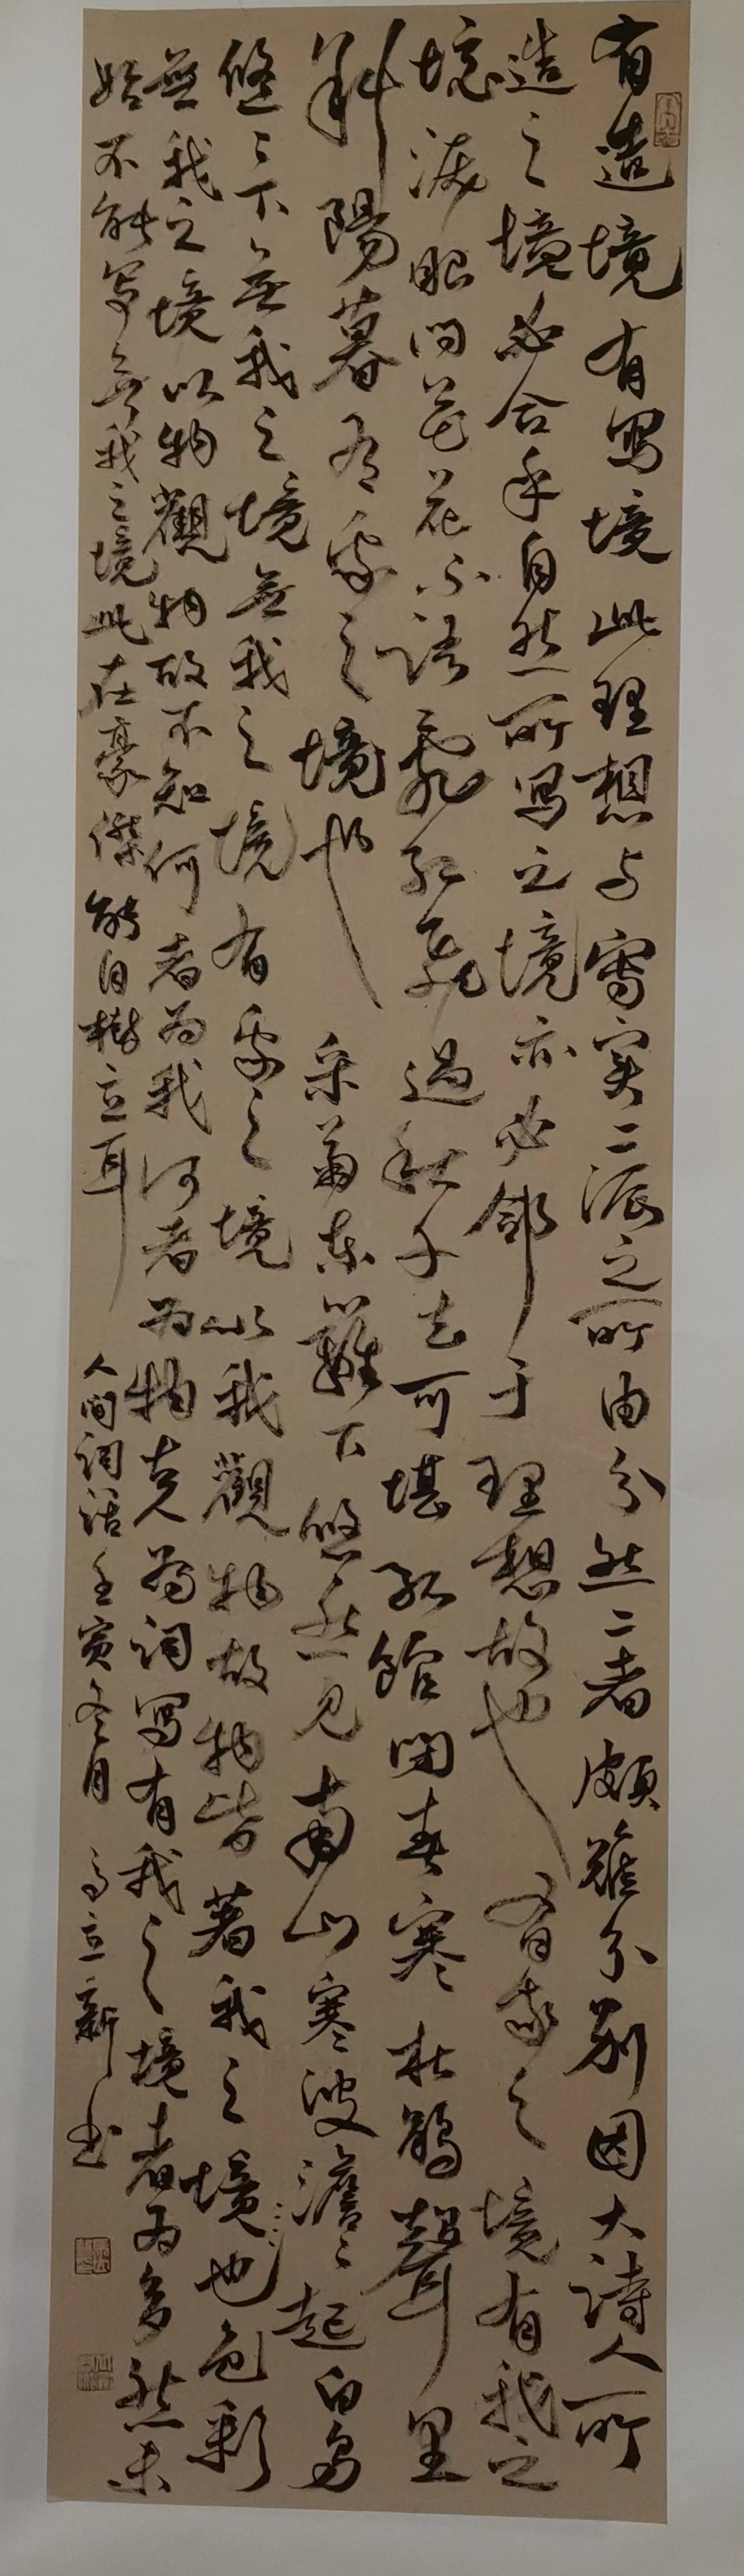 有造境有寫境此理想与寫实二派之所由分然二者頗難分别因大詩人所
造之境必合乎自然所寫之境亦必鄰于理想故也有我之境有我之
境淚眼問花花不語亂紅飛過秋千去可堪孤館閉春寒杜鵑聲里
斜陽暮有我之境也采菊東籬下悠然見南山寒波澹〻起白鳥
悠〻下無我之境無我之境有我之境以我觀物故物皆著我之境也色彩
無我之境以物觀物故不知何者為我何者為物古為詞寫有我之境者為多然未
始不能写無我之境此在豪傑能自樹立耳人间词话壬寅冬月高立新书